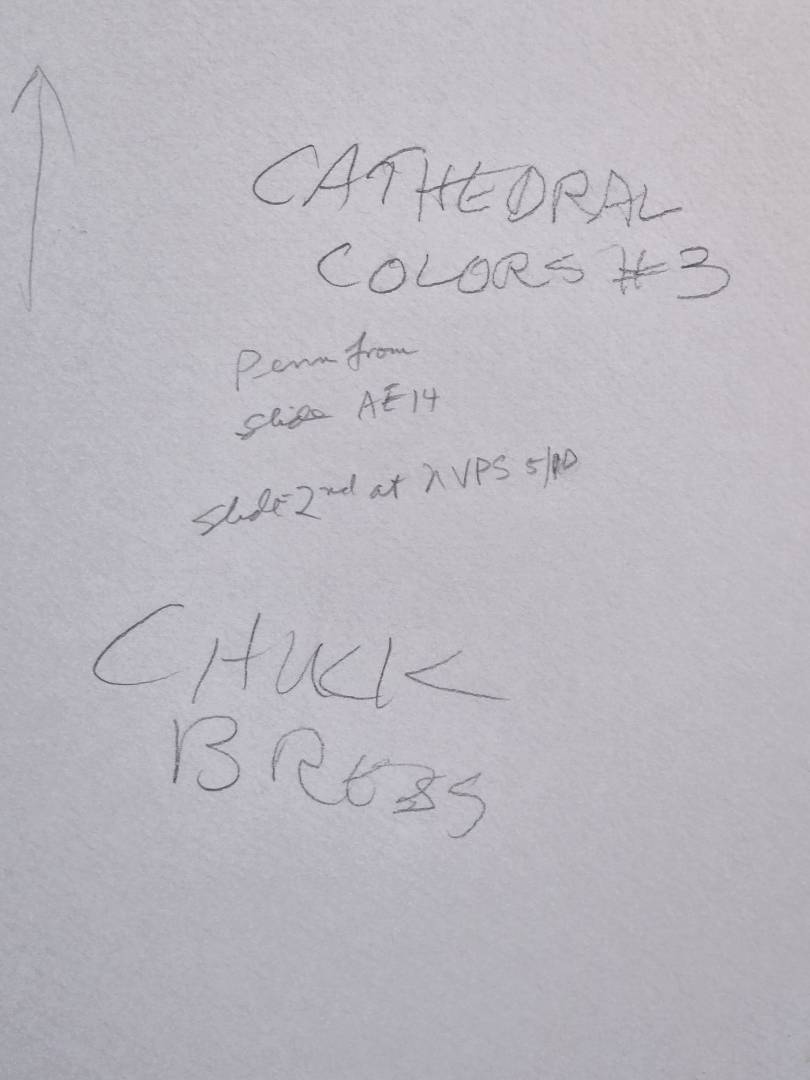 CATHEDRAL
COLORS #3
Penn from
Slide AE14
Slide 2nd at VPS
CHUCK
BRESS